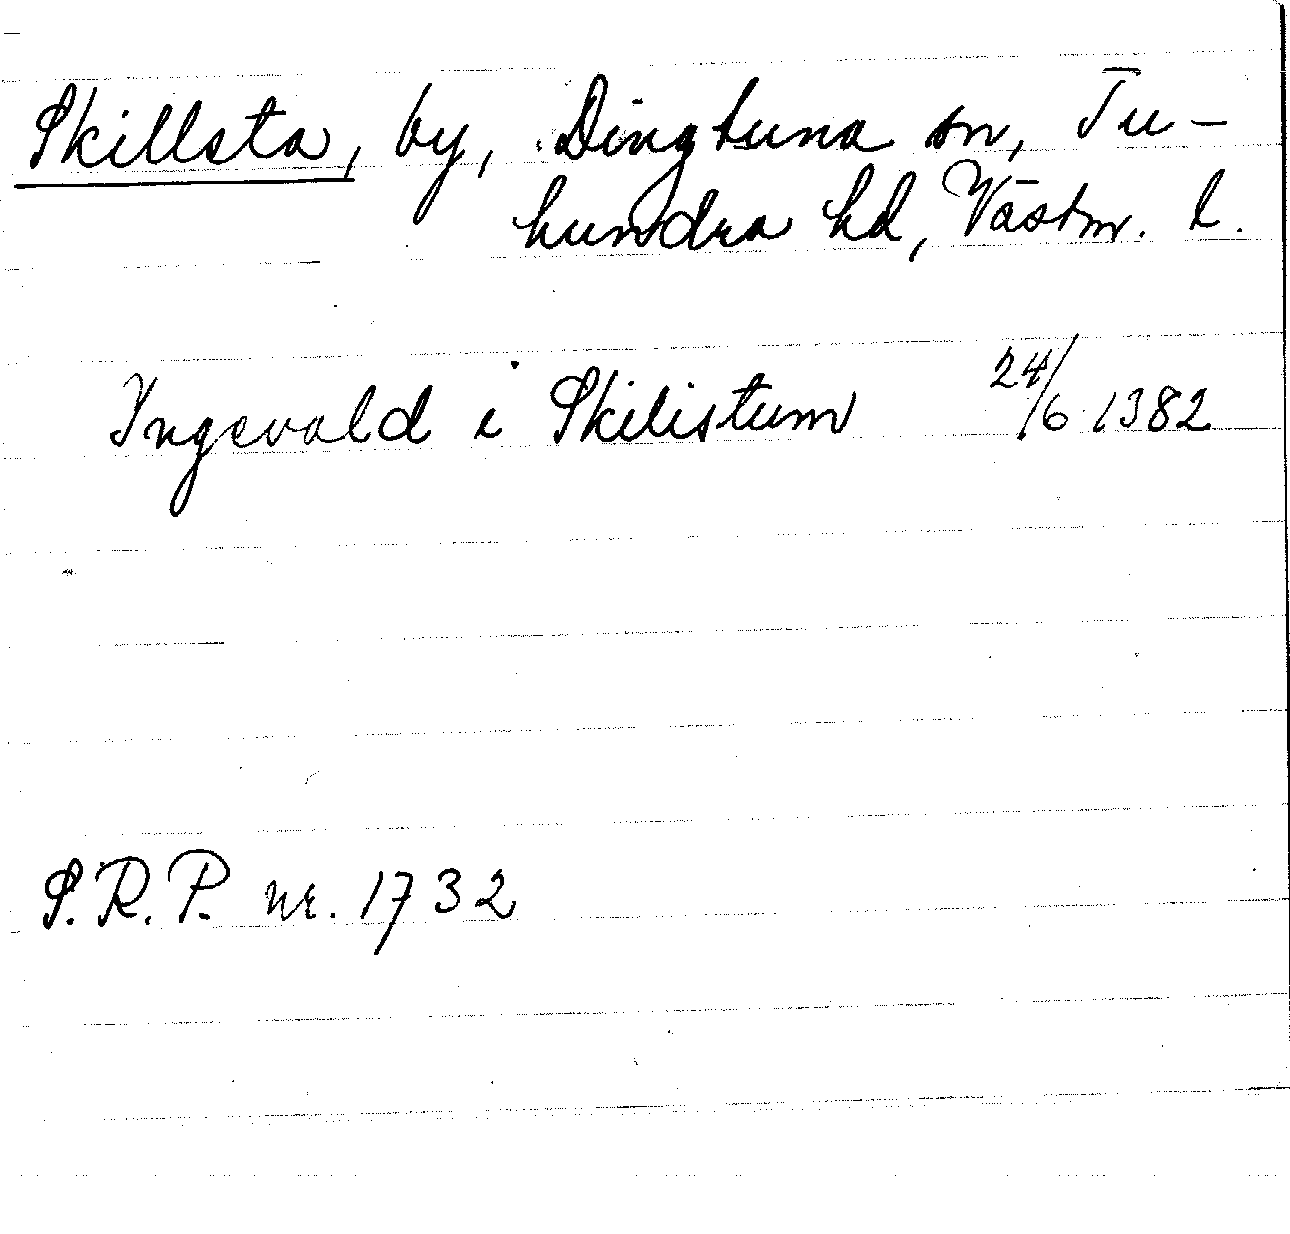 Skillsta, by, Dingtuna sn, Tu-
hundra hd, Västm. l.
Ingevald i Skilistum 24/6 1382
S.R.P. nr. 1732